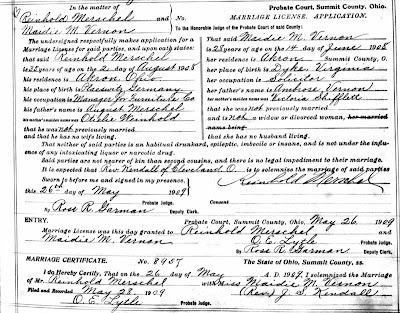 In the matter of
Reinhold Merschel
and No.
Maidie M. Vernon
Probate Court, Summit County, Ohio.
MARRIAGE LICENSE, APPLICATION.
To the Honorable Judge of the Probate Court of said County:
The undersigned respectfully makes application for a
Marriage License for said parties, and upon oath states:
that said Reinhold Merschel
is 28 years of age on the 2 day of August 1908
his residence is Akron Ohio
his place of birth is Germany
his occupation is Manager for Furniture Co
his father's name is August Merschel
his mother's maiden name was Otilie Weinhold
that he was not previously married
and that he has no wife living.
That said Maidie M. Vernon
is 25 years of age on the 14 day of June 1908
her residence is Akron Summit County, O.
her place of birth is Dyke Virginia
her occupation is Solicitor
her father's name is Ambrose Vernon
her mother's maiden name was Victoria Shifflett
that she was not previously married
and is not a widow or divorced woman, her married
name being
that she has no husband living.
That neither of said parties is an habitual drunkard, epileptic, imbecile or insane, and is not under the influ-
ence of any intoxicating liquor or narcotic drug.
Said parties are not nearer of kin than second cousins, and there is no legal impediment to their marriage.
It is expected that Rev Kendall of Cleveland O. is to solemnize the marriage of said parties
Sworn to before me and signed in my presence,
this 26th day of May 1909
Reinhold Merschel
Probate Judge.
By Ross R. Garman Deputy Clerk.
Consent
ENTRY. Probate Court, Summit County, Ohio, May 26, 1909
Marriage License was this day granted to Reinhold Merschel
and Maidie M. Vernon
O. E. Lytle Probate Judge.
By Ross R. Garman Deputy Clerk.
MARRIAGE CERTIFICATE. No. 8957 The State of Ohio, Summit County, ss:
I do Hereby Certify, That on the 26 day of May A. D. 1909, I solemnized the Marriage
of Mr. Reinhold Merschel with Miss Maidie M. Vernon
Filed and Recorded May 28 1909 (Rev) J. S. Kendall
O. E. Lytle Probate Judge.